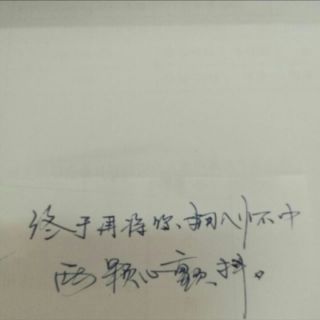 终于再将你拥入怀中
两颗心颤抖。